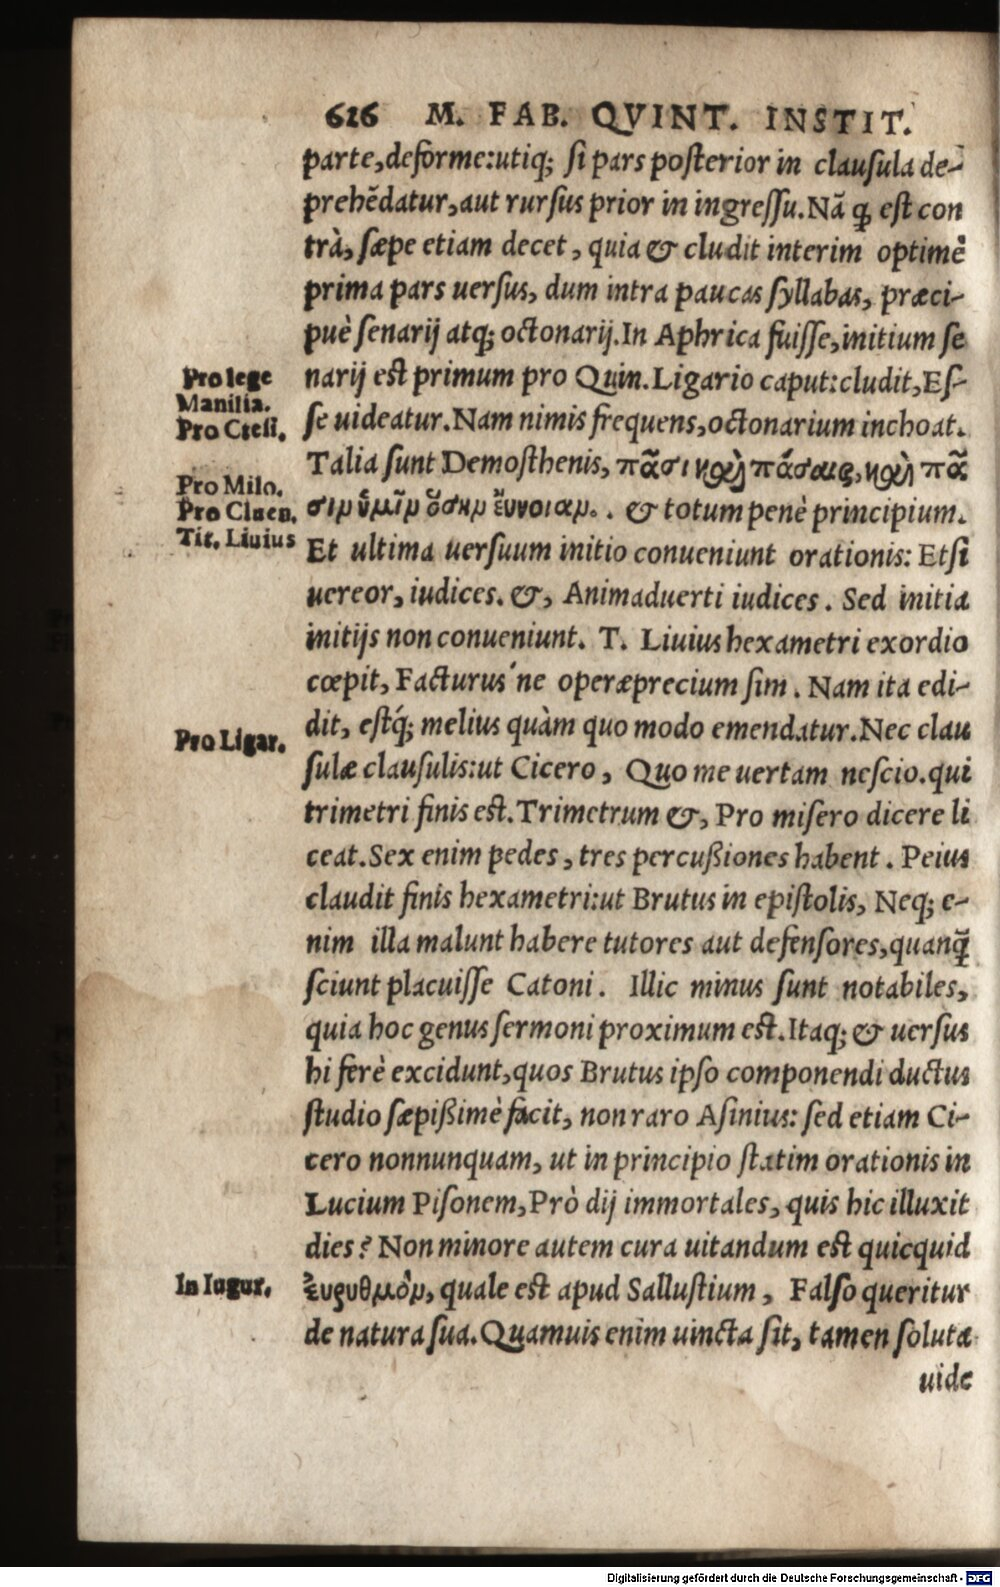 626 M. FAB. QVINT. INSTIT.
parte, deforme: utiq; si pars posterior in clausula de-
prehēdatur, aut rursus prior in ingressu. Nā ꝙ est con
trà, sæpe etiam decet, quia & cludit interim optimè
prima pars uersus, dum intra paucas syllabas, præci-
puè senarij atq; octonarij. In Aphrica fuisse, initium se
Pro lege
Manilia.
Pro Cæli.
narij est primum pro Quin. Ligario caput: cludit, Es-
se uideatur. Nam nimis frequens, octonarium inchoat.
Talia sunt Demosthenis, πᾶσι καὶ πάσαις, καὶ πᾶ
Pro Milo.
Pro Cluen.
Tit. Liuius
σιν ὑμῖν ὅσην ἔυνοιαν. . & totum penè principium.
Et ultima uersuum initio conueniunt orationis: Etsi
uereor, iudices. &, Animaduerti iudices. Sed initia
initijs non conueniunt. T. Liuius hexametri exordio
cœpit, Facturus ́ne operæprecium sim. Nam ita edi-
dit, estq́; melius quàm quo modo emendatur. Nec clau
Pro Ligar.
sulæ clausulis: ut Cicero, Quo me uertam nescio. qui
trimetri finis est. Trimetrum &, Pro misero dicere li
ceat. Sex enim pedes, tres percußiones habent. Peius
claudit finis hexametri: ut Brutus in epistolis, Neq; e-
nim illa malunt habere tutores aut defensores, quanꝗ̃
sciunt placuisse Catoni. Illic minus sunt notabiles,
quia hoc genus sermoni proximum est. Itaq; & uersus
hi ferè excidunt, quos Brutus ipso componendi ductus
studio sæpißimè facit, non raro Asinius: sed etiam Ci-
cero nonnunquam, ut in principio statim orationis in
Lucium Pisonem, Prò dij immortales, quis hic illuxit
dies? Non minore autem cura uitandum est quicquid
In Iugur.
ἔυρυθμὸν, quale est apud Sallustium, Falso queritur
de natura sua. Quamuis enim uincta sit, tamen soluta
uide
Digitalisierung gefördert durch die Deutsche Forschungsgemeinschaft - DFG